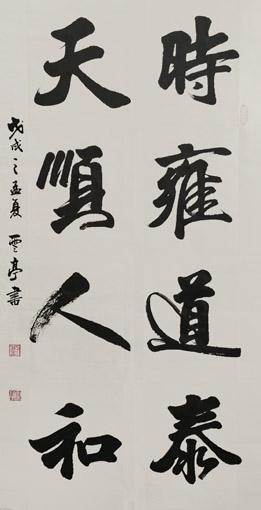 時雍道泰
天順人和
戊戌之孟夏 雲亭書